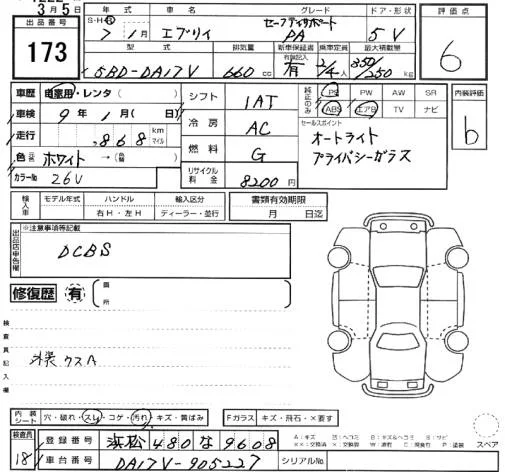 3月5日
出品番号
173
年式 車名 グレード ドア・形状 評価点
S・H・R 7年1月 エブリイ セーフティサポート PA 5V 6
型式 排気量 新車保証書 乗車定員 最大積載量
5BD-DA17V 660cc 有 2/4人 350/250kg
記録簿入り
車歴 自家用・レンタ( )
車検 9年1月(日)
走行 ,868 km マイル
色 ホワイト →(色替 )
カラーNo 26V
シフト 1AT
冷房 AC
燃料 G
リサイクル料金 8200円
純正のみ PS PW AW SR
ABS エアB TV ナビ
内装評価
b
セールスポイント
オートライト
プライバシーガラス
輸入車 モデル年式 ハンドル 輸入区分
右H・左H ディーラー・並行
書類有効期限
月 日迄
出品店申告欄 ※注意事項等記載
DCBS
修復歴 有 箇所
検査員記入欄
外装 クスA
内装シート 穴・破れ・スレ・コゲ・汚れ・キズ・黄ばみ Fガラス キズ・飛石・×要す
検査員 18
登録番号 浜松480な9608
車台番号 DA17V-905227 シリアルNo.
スペア